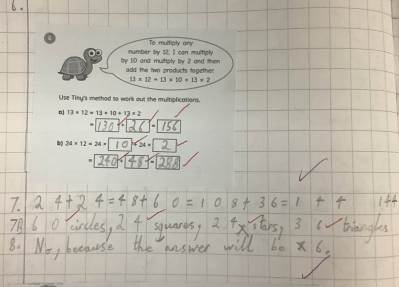 6.
6
To multiply any
number by 12, I can multiply
by 10 and multiply by 2 and then
add the two products together!
13 × 12 = 13 × 10 + 13 × 2
Use Tiny's method to work out the multiplications.
a) 13 × 12 = 13 × 10 + 13 × 2
= 130 + 26 = 156
b) 24 × 12 = 24 × 10 + 24 × 2
= 240 + 48 = 288
7. 24+24=48+60=108+36=144 144
60 circles, 24 squares, 24 stars, 36 triangles
8. No, because the answer will be × 6.